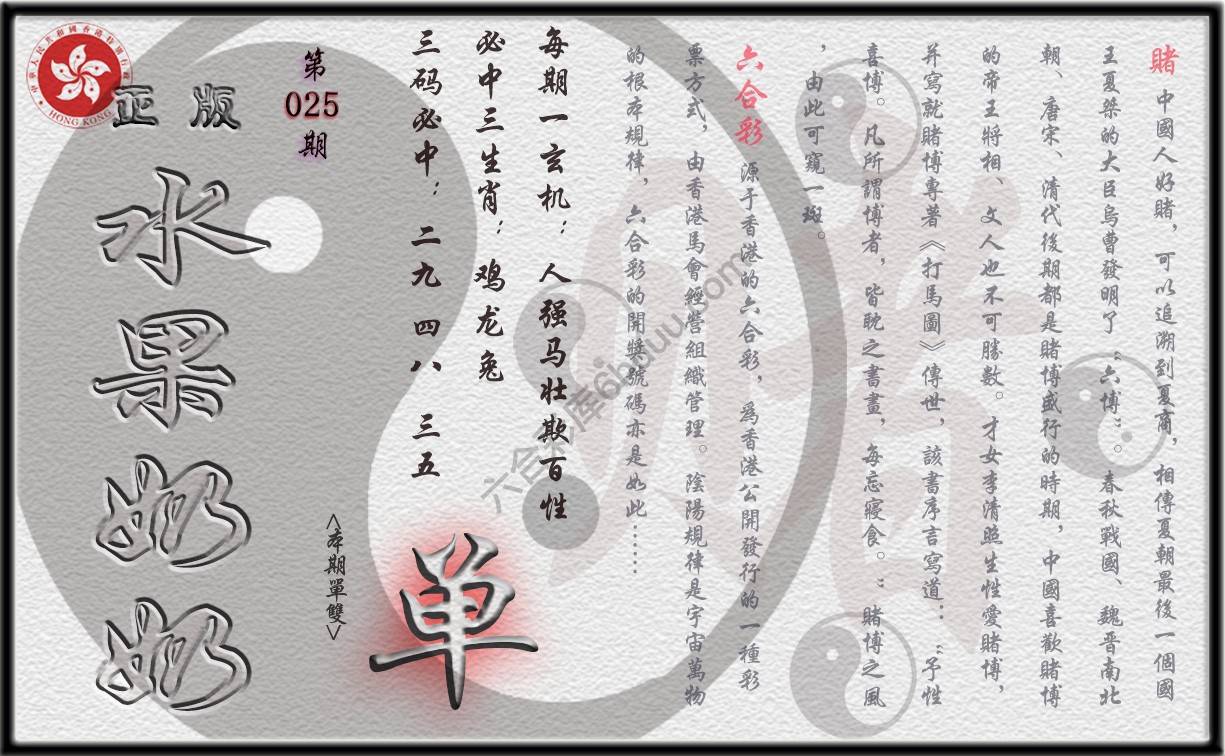 賭 中國人好賭，可以追溯到夏商，相傳夏朝最後一個國
王夏桀的大臣烏曹發明了“六博”。春秋戰國、魏晋南北
朝、唐宋、清代後期都是賭博盛行的時期，中國喜歡賭博
的帝王將相、文人也不可勝數。才女李清照生性愛賭博，
并寫就賭博專著《打馬圖》傳世，該書序言寫道：“予性
喜博。凡所謂博者，皆耽之晝夜，每忘寢食。”賭博之風
，由此可窺一斑。
六合彩 源于香港的六合彩，爲香港公開發行的一種彩
票方式，由香港馬會經營組織管理。陰陽規律是宇宙萬物
的根本規律，六合彩的開獎號碼亦是如此……
每期一玄机：人强马壮欺百性
必中三生肖：鸡龙兔
三码必中：二九 四八 三五
单
<本期單雙>
第
025
期
正版
水果奶奶
HONG KONG
六合彩库6hduu.com